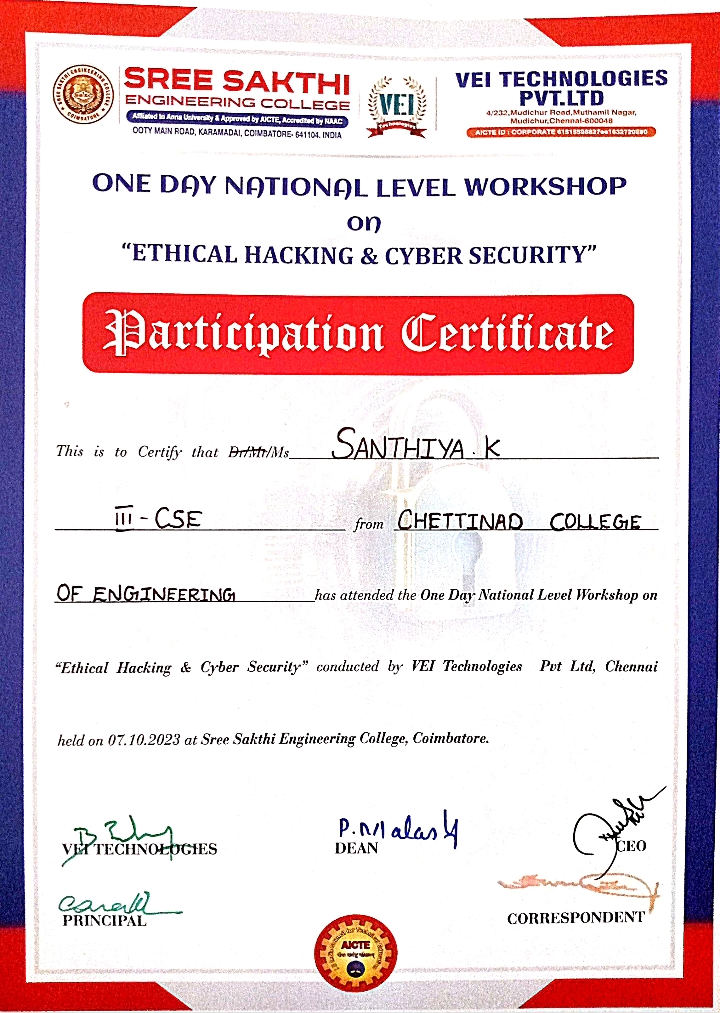 SREE SAKTHI
ENGINEERING COLLEGE
Affiliated to Anna University & Approved by AICTE, Accredited by NAAC
OOTY MAIN ROAD, KARAMADAI, COIMBATORE- 641104. INDIA
VEI
VEI TECHNOLOGIES
PVT.LTD
4/232,Mudichur Road,Muthamil Nagar,
Mudichur,Chennai-600048
AICTE ID : CORPORATE
ONE DAY NATIONAL LEVEL WORKSHOP
on
“ETHICAL HACKING & CYBER SECURITY”
Participation Certificate
This is to Certify that Dr/Mr/Ms SANTHIYA. K
III - CSE from CHETTINAD COLLEGE
OF ENGINEERING has attended the One Day National Level Workshop on
“Ethical Hacking & Cyber Security” conducted by VEI Technologies Pvt Ltd, Chennai
held on 07.10.2023 at Sree Sakthi Engineering College, Coimbatore.
VEI TECHNOLOGIES
DEAN
CEO
PRINCIPAL
CORRESPONDENT
AICTE